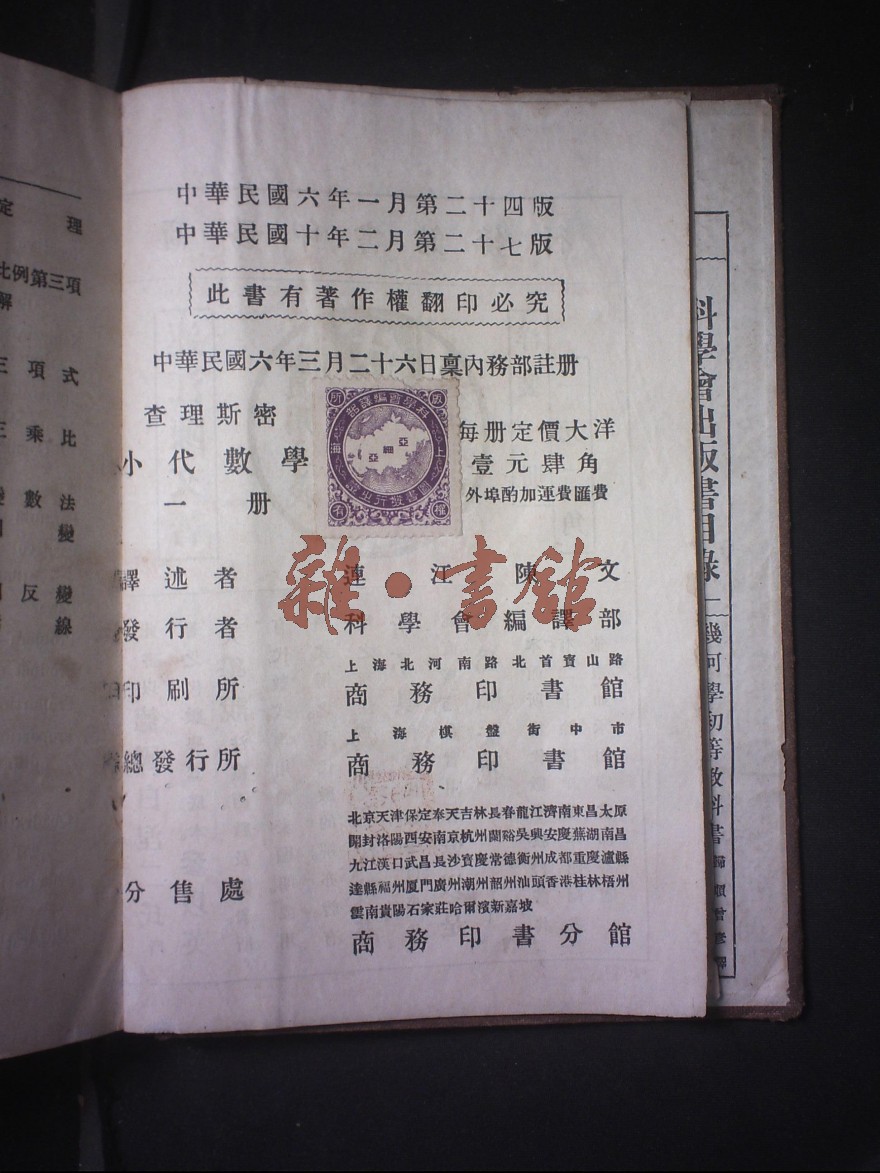 中華民國六年一月第二十四版
中華民國十年二月第二十七版
此書有著作權翻印必究
中華民國六年三月二十六日稟內務部註册
查理斯密
小代數學
一册
每册定價大洋
壹元肆角
外埠酌加運費匯費
譯述者 連江陳文
發行者 科學會編譯部
上海北河南路北首寶山路
印刷所 商務印書館
上海棋盤街中市
總發行所 商務印書館
北京天津保定奉天吉林長春龍江濟南東昌太原
開封洛陽西安南京杭州蘭谿吳興安慶蕪湖南昌
九江漢口武昌長沙寶慶常德衡州成都重慶瀘縣
達縣福州厦門廣州潮州韶州汕頭香港桂林梧州
雲南貴陽石家莊哈爾濱新嘉坡
分售處 商務印書分館
雜·書館
科學會出版書目錄 一
幾何學初等教科書
定理
比例第三項
解
三項式
乘比
數法
變
反變
線